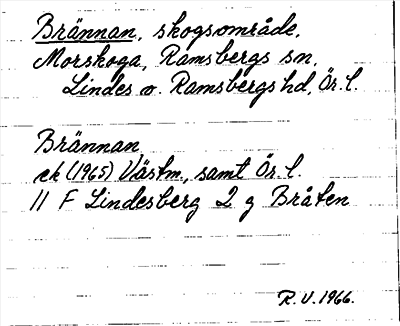 Brännan, skogsområde,
Morskoga, Ramsbergs sn,
Lindes o. Ramsbergs hd, Ör. l.
Brännan
ek (1965) Västm., samt Ör. l.
11 F Lindesberg 2 g Bråten
R.V. 1966.